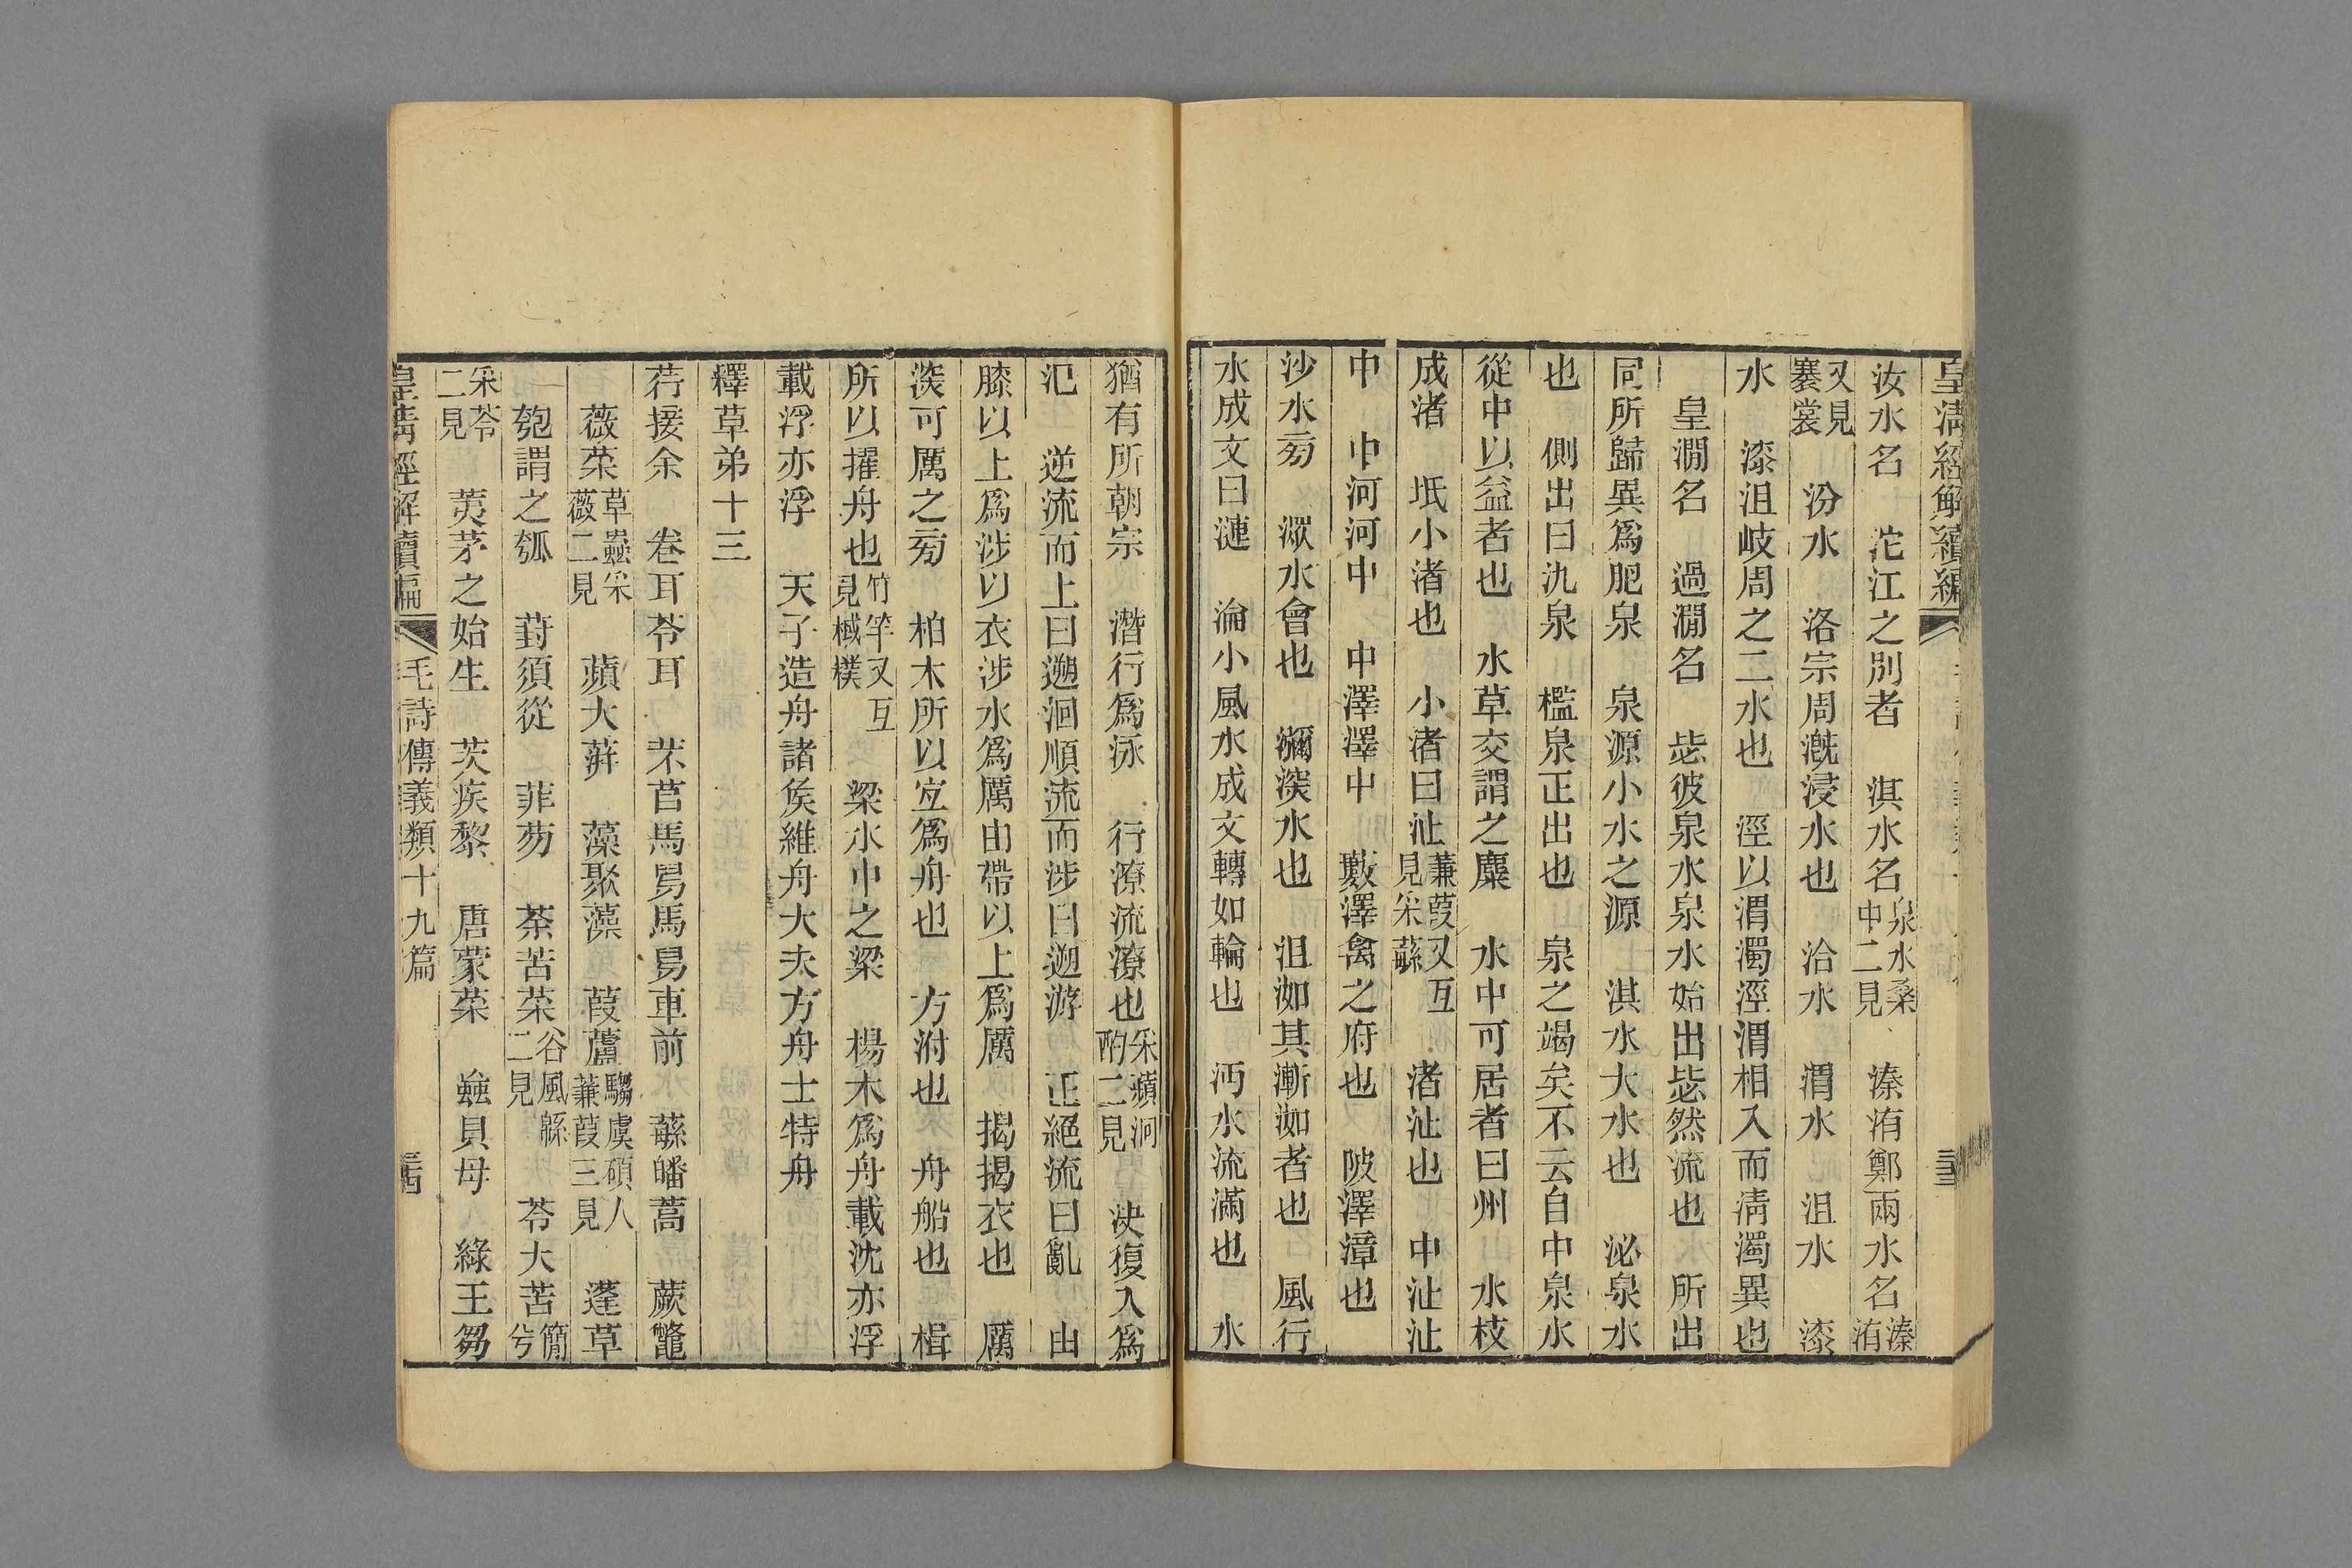 皇清經解續編
三三
汝水名　沱江之別者　淇水名泉水桑中二見　溱洧鄭兩水名溱洧
又見褰裳　汾水　洛宗周溉浸水也　洽水　渭水　沮水　漆
水　漆沮岐周之二水也　涇以渭濁涇渭相入而淸濁異也
皇澗名　過澗名　毖彼泉水泉水始出毖然流也　所出
同所歸異爲肥泉　泉源小水之源　淇水大水也　泌泉水
也　側出曰氿泉　檻泉正出也　泉之竭矣不云自中泉水
從中以益者也　水草交謂之麋　水中可居者曰州　水枝
成渚　坻小渚也　小渚曰沚蒹葭又互見采蘩　渚沚也　中沚沚
中　中河河中　中澤澤中　藪澤禽之府也　陂澤漳也
沙水㫄　潀水會也　瀰深水也　沮洳其漸洳者也　風行
水成文曰漣　淪小風水成文轉如輪也　沔水流滿也　水
猶有所朝宗　潛行爲泳　行潦流潦也采蘋泂酌二見　決復入爲
氾　逆流而上曰遡洄順流而涉曰遡游　正絕流曰亂　由
膝以上爲涉以衣涉水爲厲由帶以上爲厲　揭揭衣也　厲
深可厲之㫄　柏木所以宐爲舟也　方泭也　舟船也　楫
所以擢舟也竹竿又互見棫樸　梁水中之梁　楊木爲舟載沈亦浮
載浮亦浮　天子造舟諸矦維舟大夫方舟士特舟
釋草弟十三
荇接余　卷耳苓耳　芣苢馬舄馬舄車前　蘩皤蒿　蕨鼈
薇菜草蟲采薇二見　蘋大蓱　藻聚藻　葭蘆騶虞碩人蒹葭三見　蓬草
匏謂之瓠　葑須從　菲芴　荼苦菜谷風緜二見　苓大苦簡兮
采苓二見　荑茅之始生　茨疾黎　唐蒙菜　蝱貝母　綠王芻
皇淸經解續編
毛詩傳義類十九篇
三四